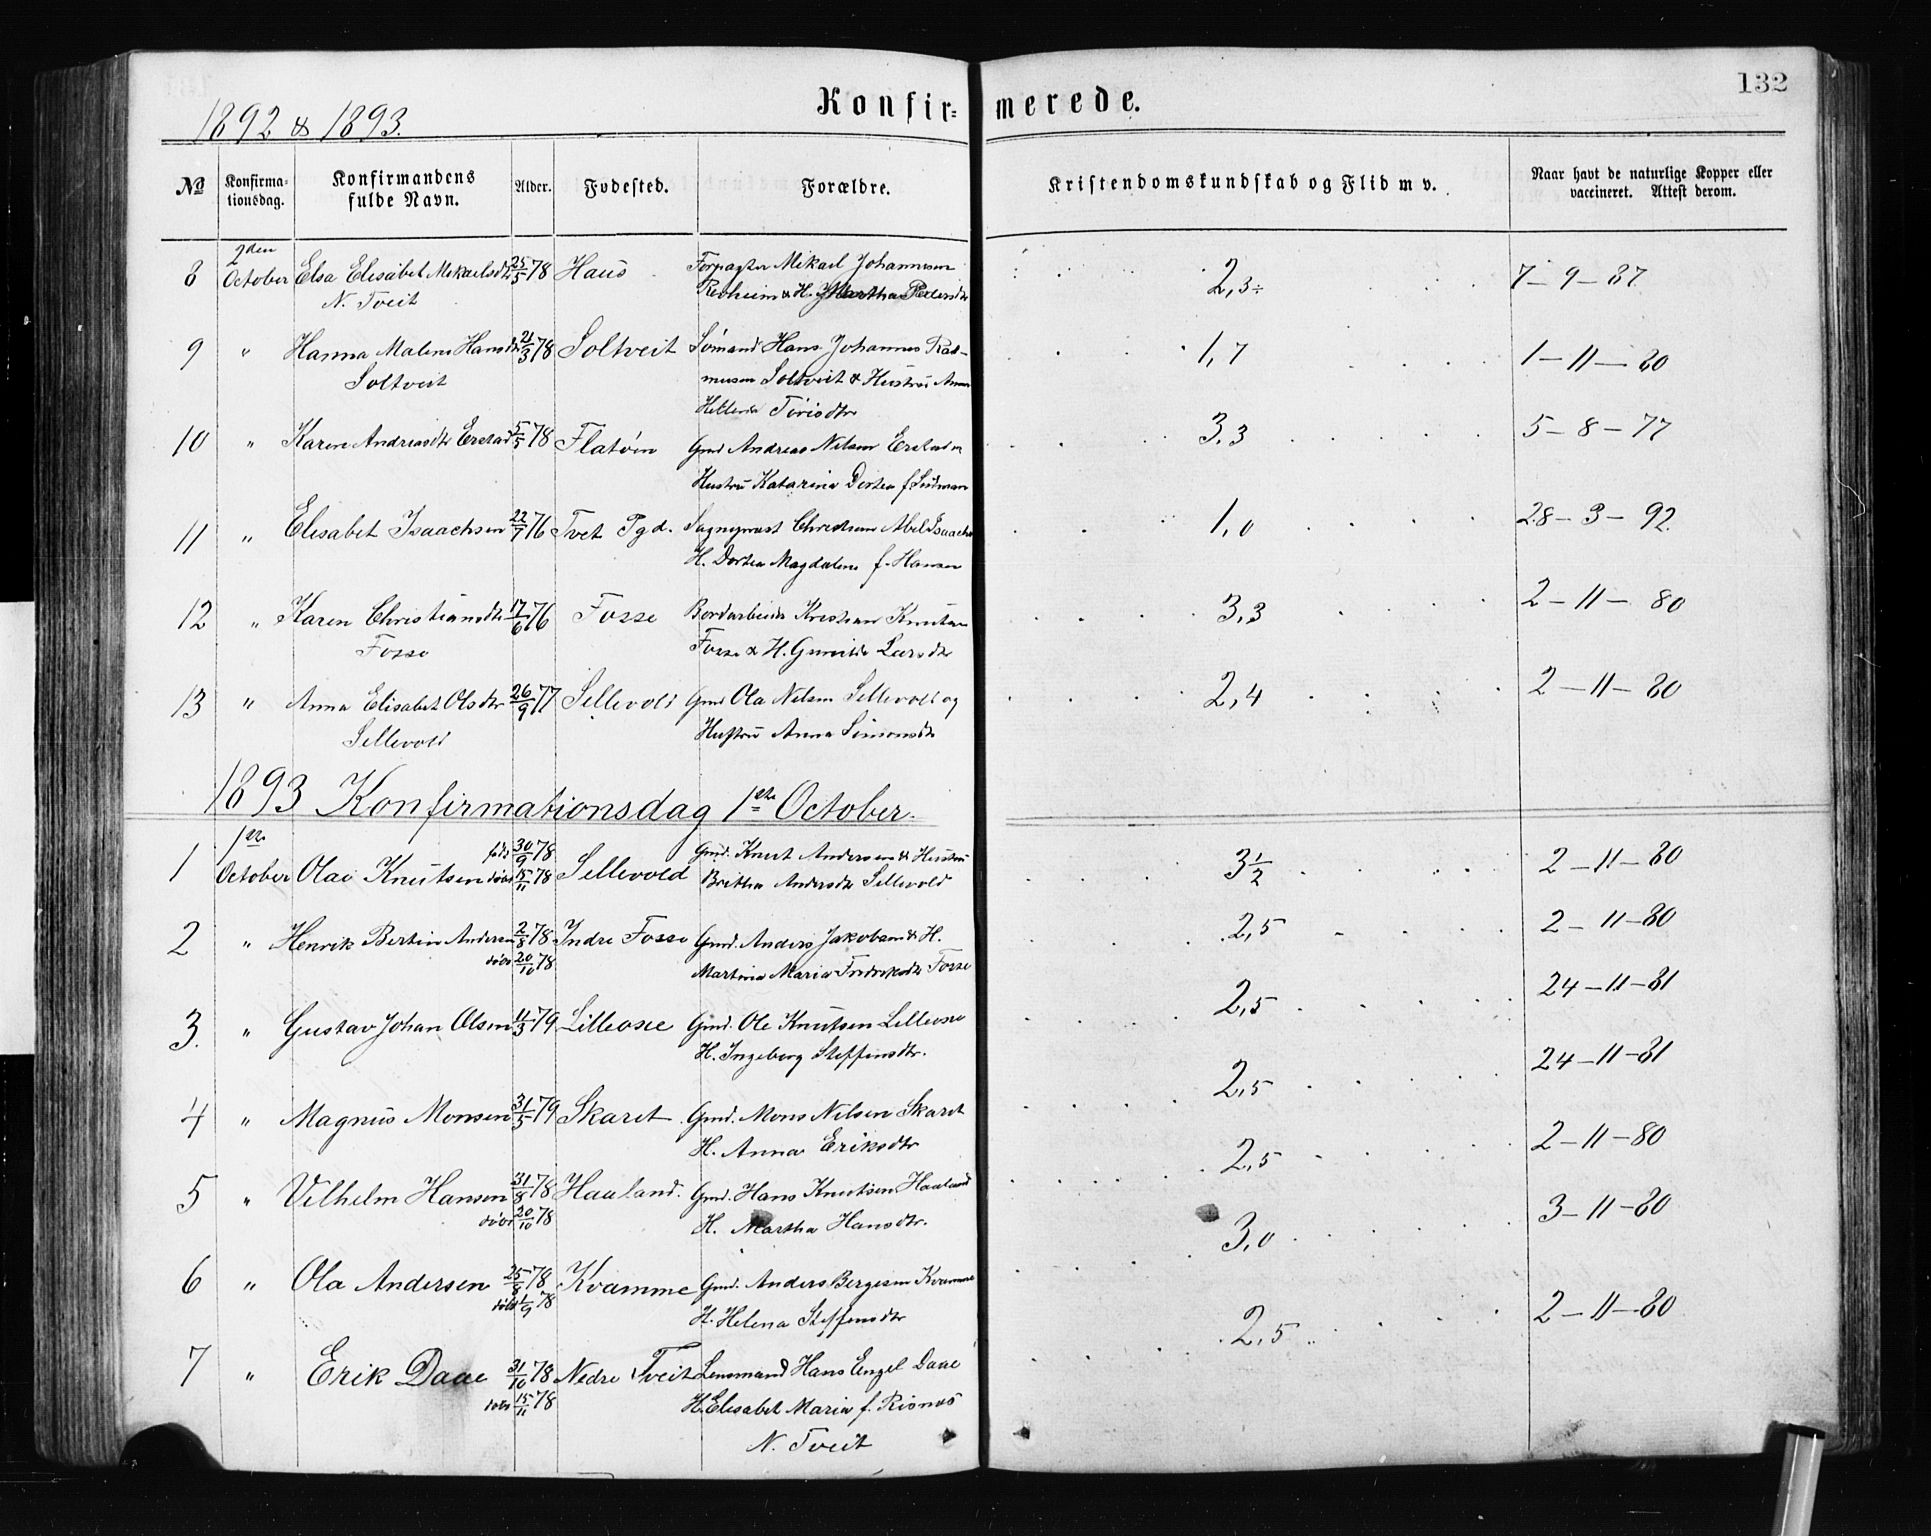 132
Konfir= merede.
1892 & 1893.
No Konfirma-tionsdag. Konfirmandens fulde Navn. Alder. Fødested. Forældre. Kristendomskundskab og Flid m v. Naar havt de naturlige Kopper eller vaccineret. Attest derom.
2den
8 October Elsa Elisabet Mikaelsdtr 25/5 78 Haus Forpagter Mikael Johannesen 2,3÷ 7-9-87
N. Tveit & H. Martha Pedersdtr
9 " Hanna Malene Hansdtr 21/3 78 Soltveit Sømand Hans Johannes Ras- 1,7 1-11-80
Soltveit musen Soltveit & Hustru Anna
10 " Karen Andreasdtr Erstad 5/5 78 Flatøen Gmd Andreas Nilsen Erstad 3,3 5-8-77
Hustru Katarina Dortea f.
11 " Elisabet Isaachsen 22/7 76 Tvet Pgd. Sogneprest Christian Abel Isaachs 1,0 28-3-92
H. Dortea Magdalene f. Hansen
12 " Karen Christiansdtr 17/6 76 Fosse Kristian Knutsen 3,3 2-11-80
Fosse Fosse & H. Gunilde Larsdtr
13 " Anna Elisabet Olsdtr 26/9 77 Sellevold Gmd Ola Nilsen Sellevold og 2,4 2-11-80
Sellevold Hustru Anna Simonsdtr
1893 Konfirmationsdag 1ste October.
1ste
1 October Olai Knutsen født 30/9 78 Sellevold Gmd. Knut Andersen & Hustru 3 1/2 2-11-80
døbt 15/11 78 Britha Andersdtr Sellevold
2 " Henrik Bertin Andersen 2/8 78 Indre Fosse Gmd. Anders Jakobsen & H. 2,5 2-11-80
døbt 20/10 78 Martina Maria Fredriksdtr Fosse
3. " Gustav Johan Olsen 11/3 79 Lilleose Gmd. Ole Knutsen Lilleose 2,5 24-11-81
H. Ingeborg Steffensdtr.
4 " Magnus Monsen 31/5 79 Skaret Gmd. Mons Nilsen Skaret 2,5 24-11-81
H. Anna Eriksdtr
5 " Vilhelm Hansen 31/8 78 Haaland. Gmd. Hans Knutsen Haaland 2,5 2-11-80
døbt 20/10 78 H. Martha Hansdtr.
6 " Ola Andersen 25/8 78 Kvamme Gmd. Anders Bergesen Kvamme 3,0 3-11-80
døbt 1/9 78 H. Helena Steffensdtr
7 " Erik Daae 31/10 78 Nedre Tveit Lensmand Hans Engel Daae 2,5 2-11-80
døbt 15/11 78 H. Elisabet Maria f. Risnes
N. Tveit